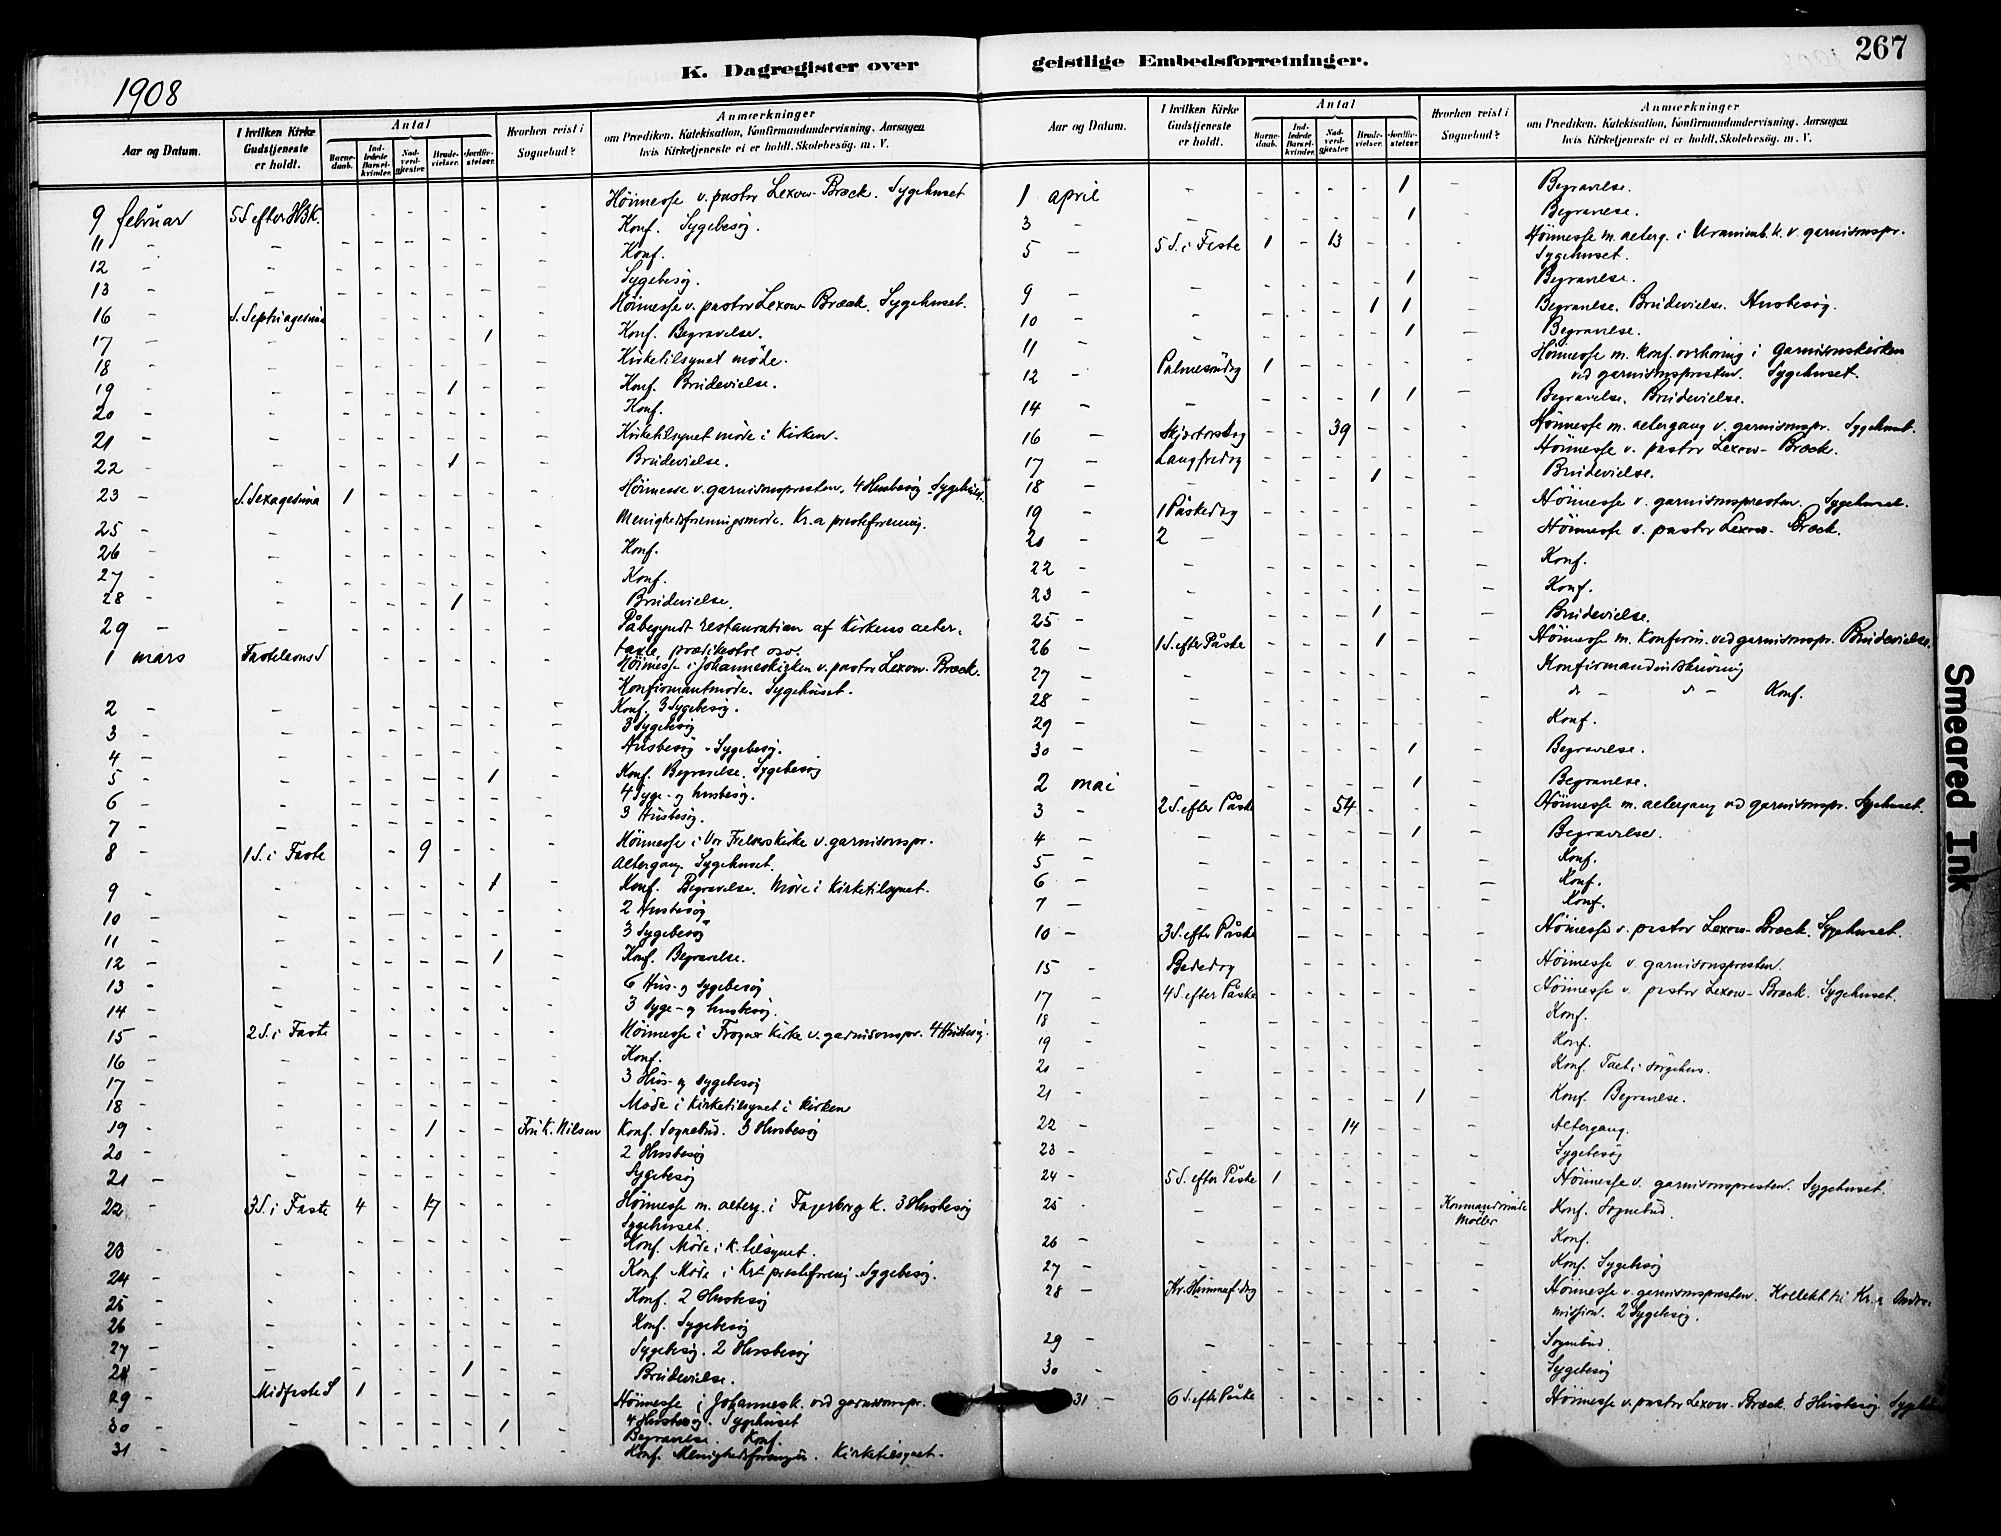 267
K. Dagregister over geistlige Embedsforretninger.
1908
Aar og Datum.
I hvilken Kirke Gudstjeneste er holdt.
Antal
Barne-daab.
Ind-ledede Barsel-kvinder.
Nad-verd-gjester.
Brude-vielser.
Jordfæ-stelser.
Hvorhen reist i Sognebud?
Anmærkninger
om Prædiken, Katekisation, Konfirmandundervisning, Aarsagen
hvis Kirketjeneste ei er holdt, Skolebesøg, m. V.
9 februar 5 S. efter H3K. - - - - - - Höimesse v. pastor Lexow-Bræck. Sygehuset
11 - - Konf. Sygebesög.
12 - - Konf.
13 - - Sygebesög.
16 - S. Septuagesima - Höimesse v. pastor Lexow Bræck. Sygehuset.
17 - - 1 - Konf. Begravelse.
18 - - Kirketilsynet möde.
19 - - 1 - Konf. Brudevielse.
20 - - Konf.
21 - - Kirketilsynet möde i Kirken.
22 - - 1 - Brudevielse.
23 - S. Sexagesima 1 - Höimesse v. garnisonspresten. 4 Husbesög - Sygehuset.
25 - - Menighedsforeningsmöde. Kr.a presteforening.
26 - - Konf.
27 - - Konf.
28 - - 1 - Brudevielse.
29 - - Påbegyndt restauration af Kirkens alter-
tavle, prædikestol osv.
1 mars Fastelavns S - Höimesse i Johanneskirken v. pastor Lexow-Bræck.
Konfirmantmöde. Sygehuset.
2 - - Konf. 3 Sygebesög.
3 - - 3 Sygebesög
4 - - Husbesög - Sygebesög.
5 - - 1 - Konf. Begravelse. Sygebesög
6 - - 4 Syge- og husbesög.
7 - - 3 Husbesög.
8 - 1 S. i Faste - 9 - Höimesse i Vor Frelsers kirke v. garnisonspr.
Altergang. Sygehuset.
9 - - 1 - Konf. Begravelse. Möde i Kirketilsynet.
10 - - 2 Husbesög
11 - - 3 Sygebesög
12 - - 1 - Konf. Begravelse.
13 - - 6 Hus- og Sygebesög
14 - - 3 Syge- og husbesög.
15 - 2 S. i Faste - Höimesse i Frogner Kirke v. garnisonspr. 4 Husbesög.
16 - - Konf.
17 - - 3 Hus- og Sygebesög
18 - - Möde i Kirketilsynet i Kirken
19 - - 1 - Fru K. Nilsen Konf. Sognebud. 3 Husbesög
20 - - 2 Husbesög
21 - - Sygebesög
22 - 3 S. i Faste 4 - 17 - Höimesse m. alterg. i Fagerborg K. 3 Husbesög
Sygehuset.
23 - - Konf. Möde i K. tilsynet.
24 - - Konf. Möde i Kra presteforenig. Sygebesög.
25 - - Konf. 2 Husbesög
26 - - Konf. Sygebesög
27 - - Sygebesög. 2 Husbesög
28 - - 1 - Brudevielse.
29 - Midfaste S 1 - Höimesse i Johannesk. ved garnisonspr.
4 Husbesög. Sygehuset
30 - - 1 - Begravelse. Konf.
31 - - Konf. Menighedsforeningen. Kirketilsynet.
Aar og Datum.
I hvilken Kirke Gudstjeneste er holdt.
Antal
Barne-daab.
Ind-ledede Barsel-kvinder.
Nad-verd-gjester.
Brude-vielser.
Jordfæ-stelser.
Hvorhen reist i Sognebud?
Anmærkninger
om Prædiken, Katekisation, Konfirmandundervisning, Aarsagen
hvis Kirketjeneste ei er holdt, Skolebesøg, m. V.
1 april - 1 - Begravelse.
3 - - 1 - Begravelse.
5 - 5 S. i Faste 1 - 13 - Höimesse m. alterg. i Uranienb. k. v. garnisonspr.
Sygehuset.
9 - - 1 - Begravelse.
10 - - 1 1 - Begravelse. Brudevielse. Husbesög.
11 - - 1 - Begravelse.
12 - Palmesöndag 1 - Höimesse m. konf. overhöring i Garnisonskirken
ved garnisonspresten. Sygehuset.
14 - - 1 1 - Begravelse. Brudevielse.
16 - Skjærtorsdag - 39 - Höimesse m. altergang v. garnisonspr. Sygehuset.
17 - Langfredag - Höimesse v. pastor Lexow-Bræck.
18 - - 1 - Brudevielse.
19 - 1 Påskedag - Höimesse v. garnisonspresten. Sygehuset.
20 - 2 - - Höimesse v. pastor Lexow-Bræck.
22 - - Konf.
23 - - Konf.
25 - - 1 - Brudevielse.
26 - 1 S. efter Påske - 1 - Höimesse m. Konfirm. ved garnisonspr. Brudevielse.
27 - - Konfirmandindskrivning
28 - - do - do - Konf.
29 - - Konf.
30 - - 1 - Begravelse.
2 mai - 1 - Begravelse.
3 - 2 S. efter Påske - 54 - Höimesse m. altergang ved garnisonspr. Sygehuset.
4 - - 1 - Begravelse.
5 - - Konf.
6 - - Konf.
7 - - Konf.
10 - 3 S. efter Påske - Höimesse v. pastor Lexow-Bræck. Sygehuset.
15 - Bededag - Höimesse v. garnisonspresten.
17 - 4 S. efter Påske - Höimesse v. pastor Lexow-Bræck. Sygehuset.
18 - Konf.
19 - Konf.
20 - - Konf. Talt i sörgehus.
21 - - 1 - Konf. Begravelse.
22 - - 14 - Altergang.
23 - - Sygebesög
24 - 5 S. efter Påske 1 - Höimesse v. garnisonspresten. Sygehuset.
25 - Möller Konf. Sognebud.
26 - - Konf.
27 - - Konf. Sygebesög
28 - Kr. Himmelf. dag - Höimesse v. garnisonspresten. Kollekt til Kr.a Indre-
mission. 2 Sygebesög.
29 - - Sognebud.
30 - - Sygebesög
31 - 6 S. efter Påske - Höimesse v. pastor Lexow-Bræck. 8 Husbesög
Smeared Ink